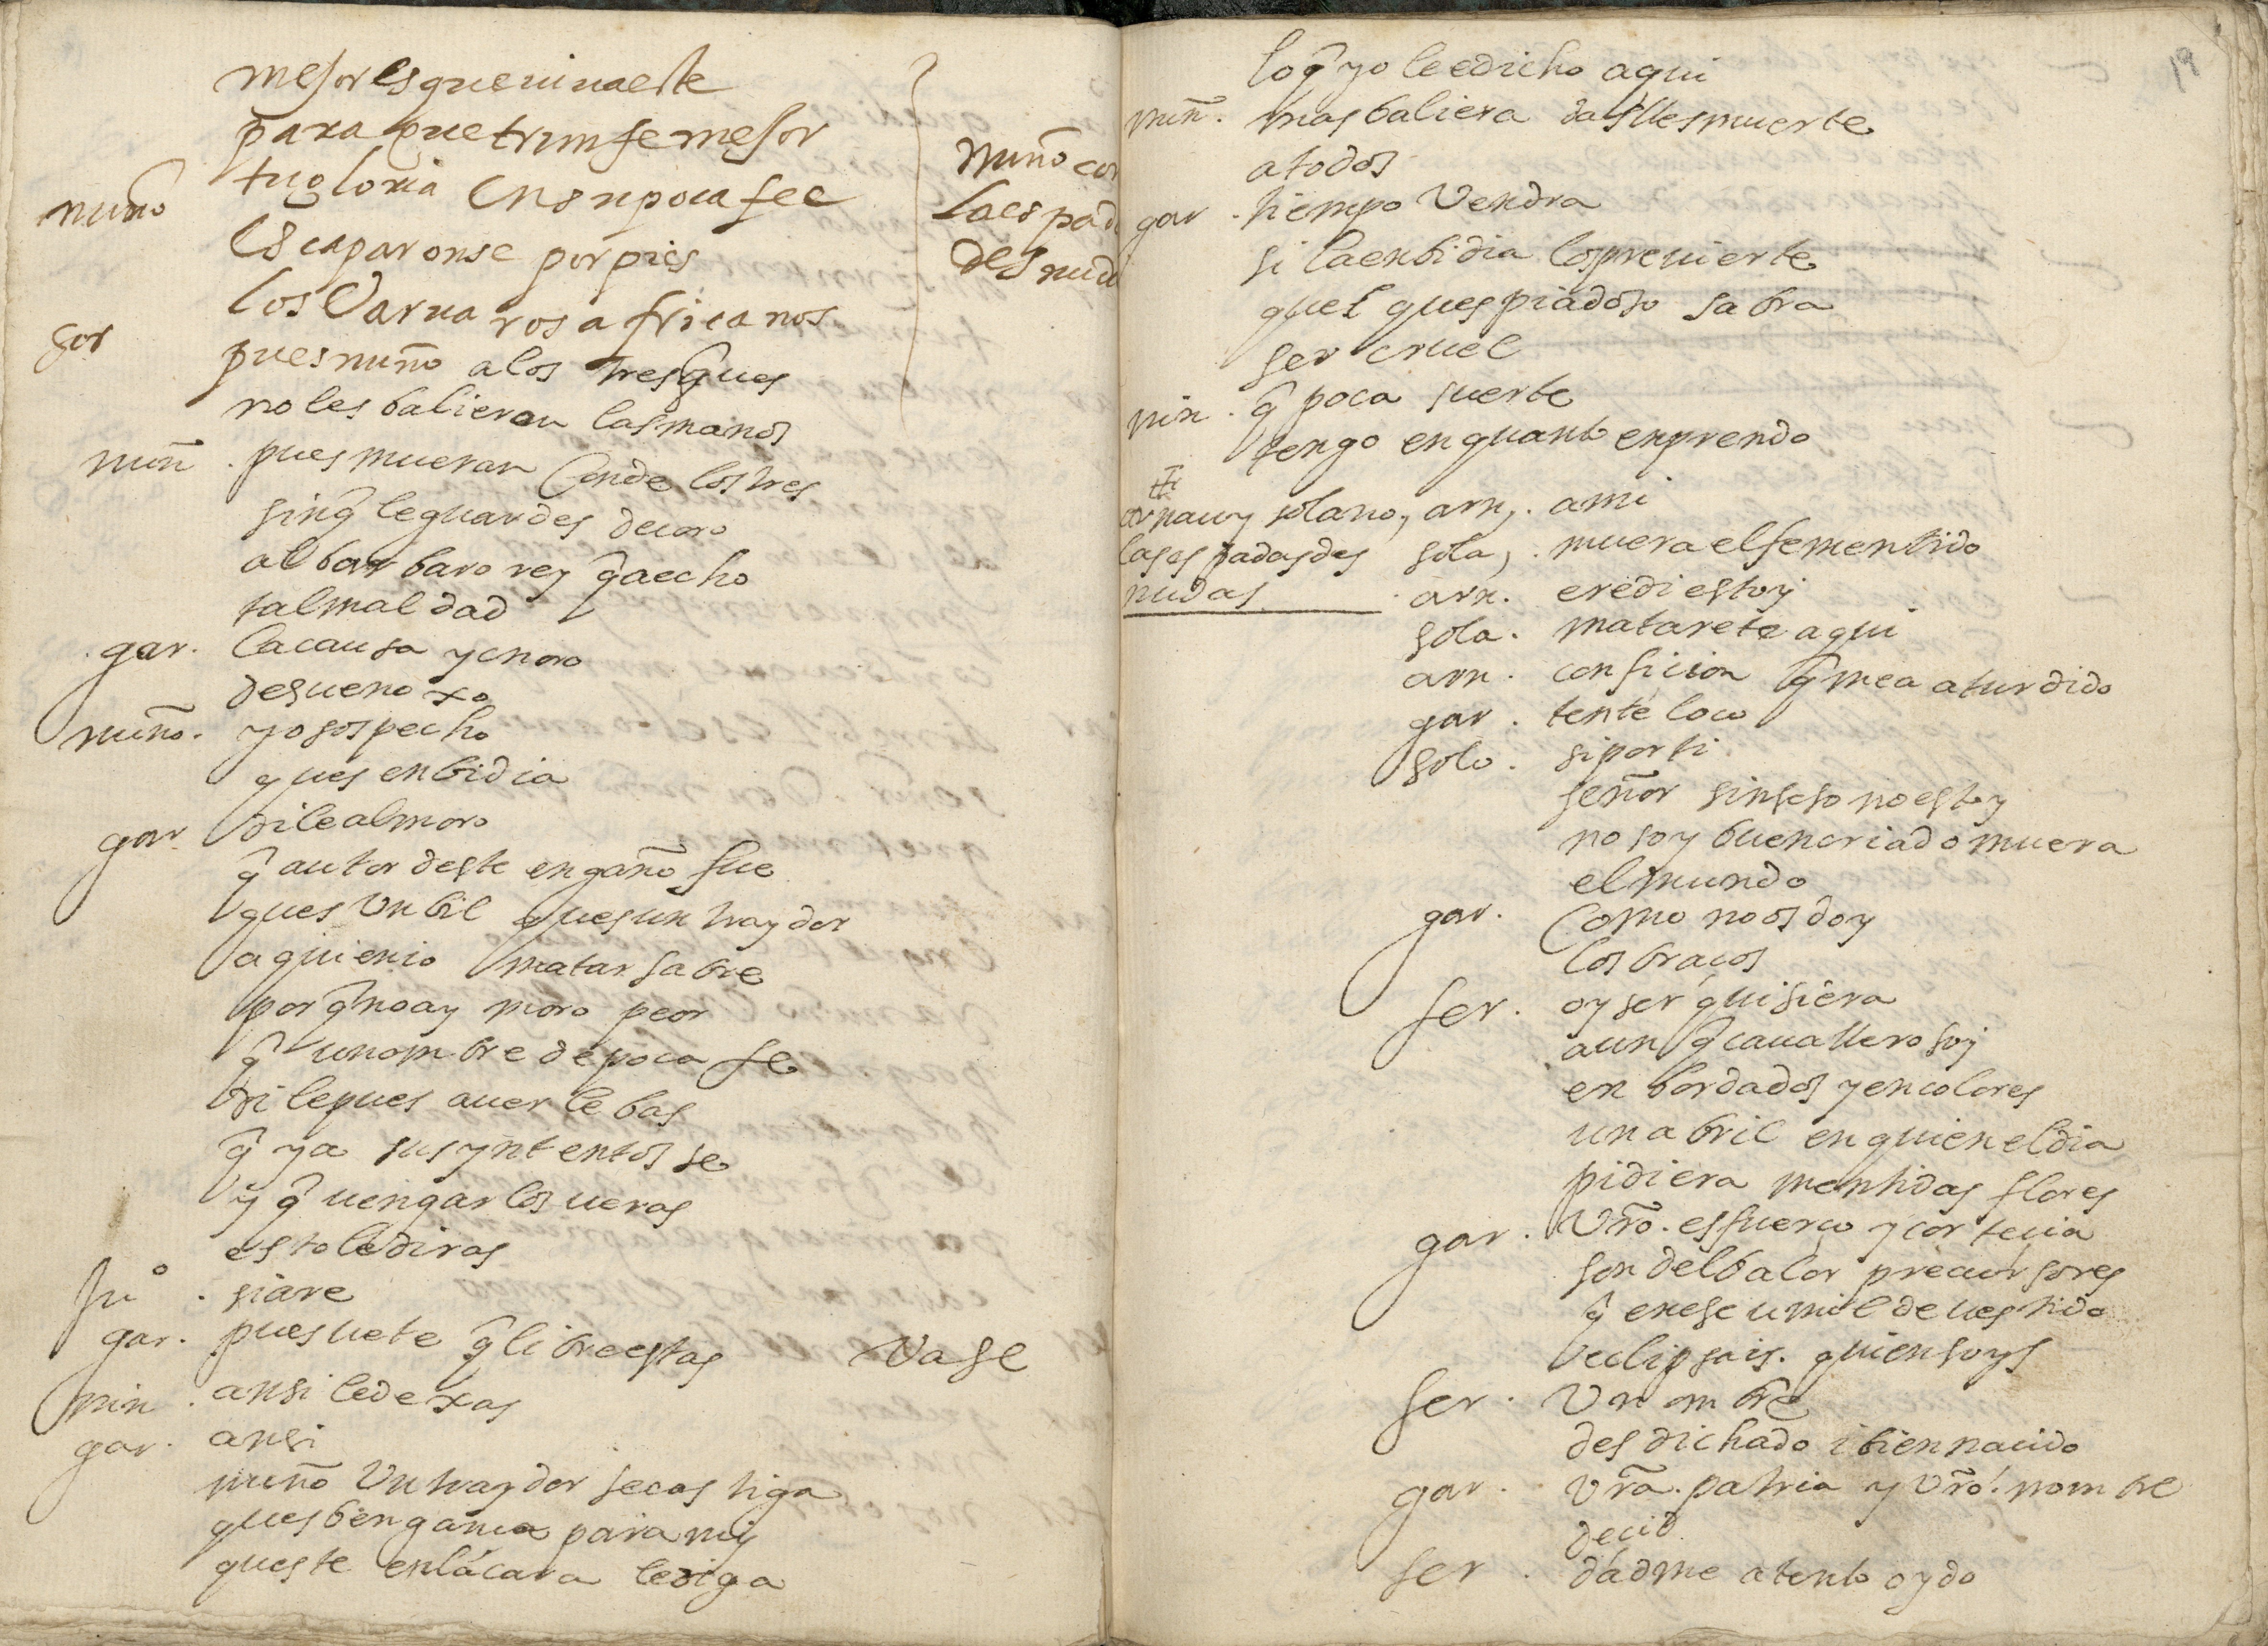 mejor es que viva este
para que triunfe mejor
tu gloria en su poca fee
nuño escaparonse por pies
los varvaros africanos
gar pues nuño a los tres ques
no les balieron las manos
nuño con
la espada
desnuda
nuñ. pues mueran Conde los tres
sin q̃ le guardes decoro
al barbaro rey q̃ a echo
tal maldad
gar. la causa ynoro
de su enoxo
nuño. yo sospecho
ques enbidia
gar dile al moro
q̃ autor deste engaño fue
ques Un bil ques un traydor
a quien io matar sabre
por q̃ no ay moro peor
q̃ un ombre de poca fe
dile pues a uerle bas
q̃ ya sus yntentos se
y q̃ uengarlos ueras
esto le diras
si are
gar. pues uete q̃ libre estas Vase
nun. ansi le dexas
gar. ansi
nuño Un traydor se castiga
ques bengança para mi
queste en la cara le diga
19
lo q̃ yo le e dicho aqui
nuñ. mas baliera dalles muerte
a todos
gar. tiempo Vendra
si la enbidia los previerte
quel ques piadoso sabra
ser cruel
nun. q̃ poca suerte
tengo en quanto enprendo
arnau y solano,
las espadas des
nudas
arn. a mi
sola. muera el fementido
arn. eredi estoy
sola. matarete aqui
arn. confision q̃ me a aturdido
gar. tente loco
sola. si por ti
señor sin seso no estoy
no soy buen criado muera
el mundo
gar. Como no os doy
los braços
fer. oy ser quisiera
aun q̃ cauallero soy
en bordados y en colores
un abril en quien el dia
pidiera mentidas flores
gar. Vrõ. esfuerço y cortecia
son del balor precursores
q̃ en ese umilde uestido
eclipsais. quien soys
fer. Un ombre
desdichado i bien nacido
gar. Vrã. patria y Vrõ. nombre
decid
fer. dadme atento oydo